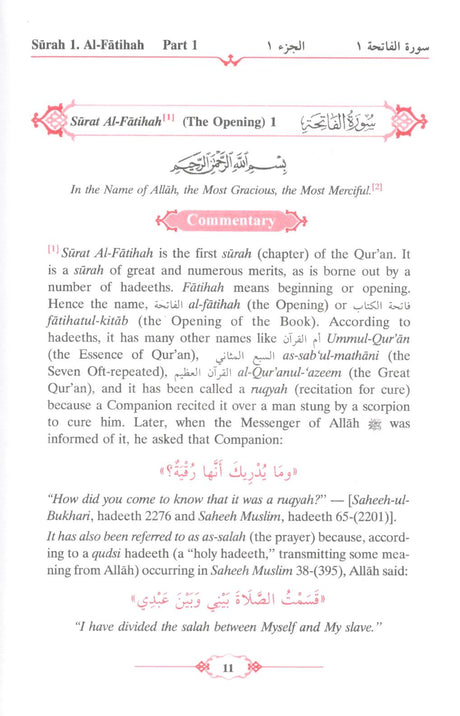 Sūrah 1. Al-Fātihah Part 1 الجزء ١ سورة الفاتحة ١
Sūrat Al-Fātihah[1] (The Opening) 1 سُورَةُ الفَاتِحَة
بِسْمِ اللَّهِ الرَّحْمَنِ الرَّحِيمِ
In the Name of Allāh, the Most Gracious, the Most Merciful.[2]
Commentary
[1] Sūrat Al-Fātihah is the first sūrah (chapter) of the Qur'an. It
is a sūrah of great and numerous merits, as is borne out by a
number of hadeeths. Fātihah means beginning or opening.
Hence the name, الفاتحة al-fātihah (the Opening) or فاتحة الكتاب
fātihatul-kitāb (the Opening of the Book). According to
hadeeths, it has many other names like أم القرآن Ummul-Qur'ān
(the Essence of Qur'an), السبع المثاني as-sab'ul-mathāni (the
Seven Oft-repeated), القرآن العظيم al-Qur'anul-'azeem (the Great
Qur'an), and it has been called a ruqyah (recitation for cure)
because a Companion recited it over a man stung by a scorpion
to cure him. Later, when the Messenger of Allāh ﷺ was
informed of it, he asked that Companion:
«وما يُدْرِيكَ أَنَّها رُقْيَةٌ؟»
"How did you come to know that it was a ruqyah?" — [Saheeh-ul-
Bukhari, hadeeth 2276 and Saheeh Muslim, hadeeth 65-(2201)].
It has also been referred to as as-salah (the prayer) because, accord-
ing to a qudsi hadeeth (a "holy hadeeth," transmitting some mea-
ning from Allāh) occurring in Saheeh Muslim 38-(395), Allāh said:
«قَسَمْتُ الصَّلَاةَ بَيْنِي وَبَيْنَ عَبْدِي»
"I have divided the salah between Myself and My slave."
11